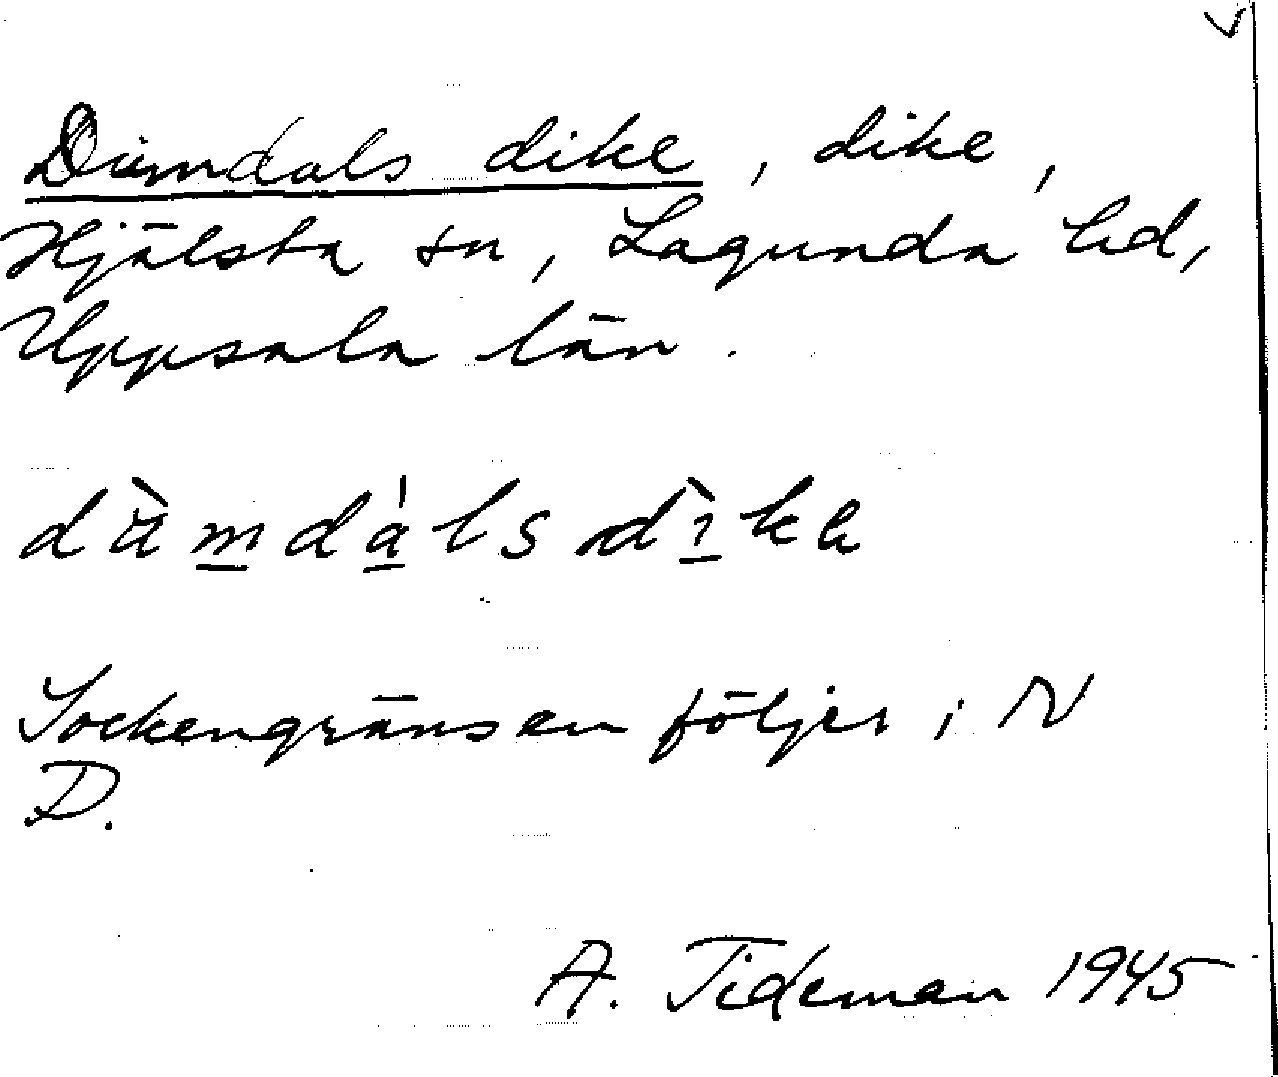 Dämdals dike, dike,
Hjälsta sn, Lagunda hd,
Uppsala län.
dä̀mdálsdìkɐ
Sockengränsen följer i N
D.
A. Tideman 1945